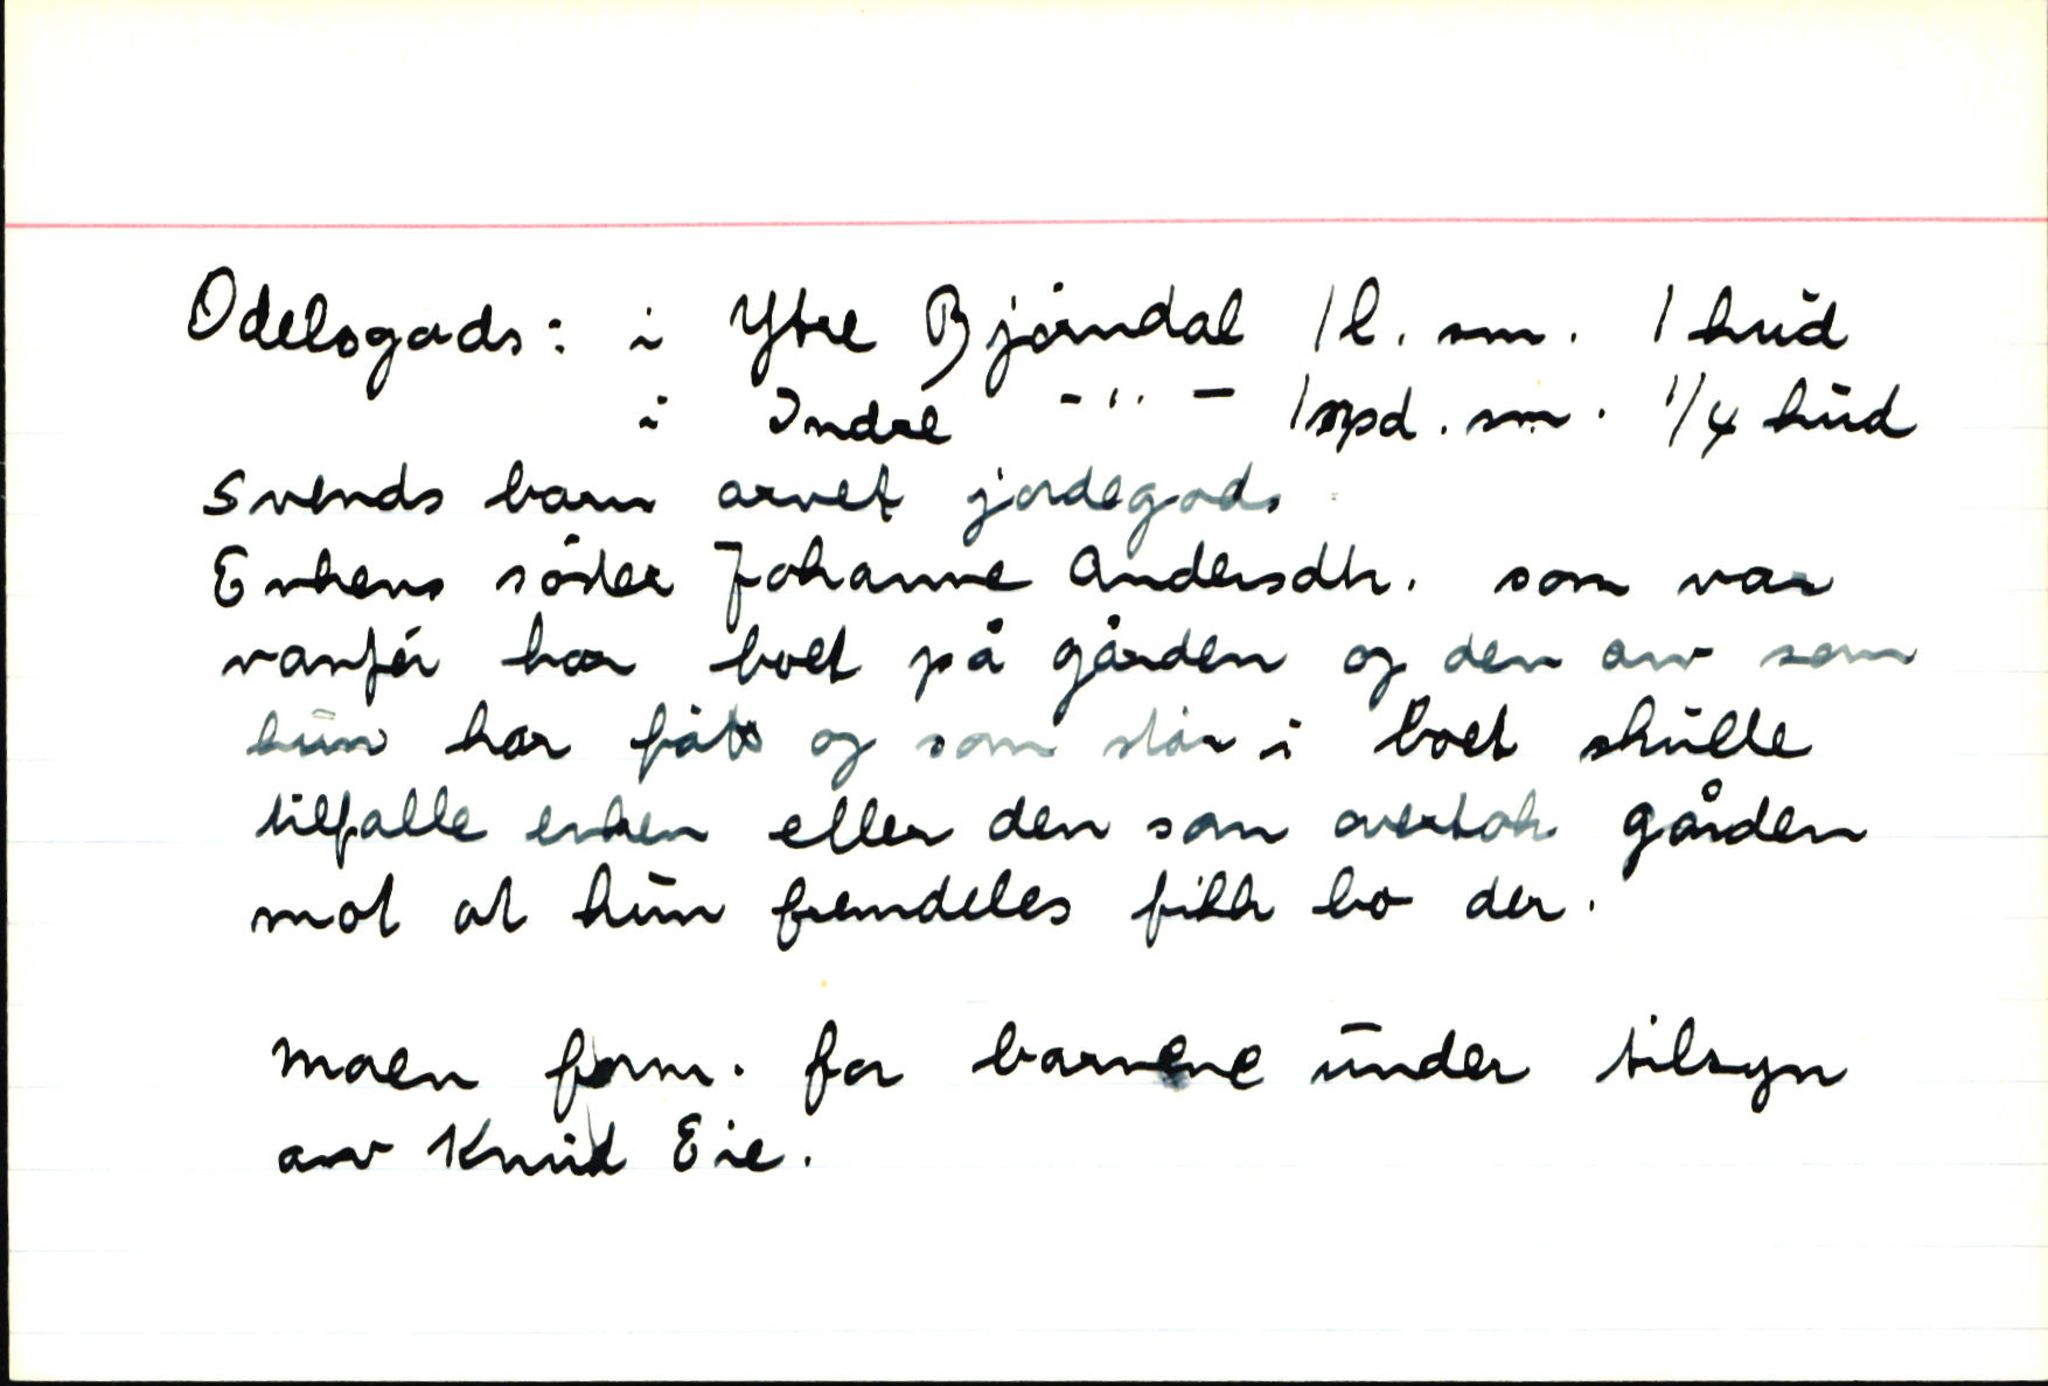 Odelsgods: i Ytre Bjørndal 1 l. sm. 1 hud
i Indre -"- 1 spd. sm. 1/4 hud
Svends barn arvet jordegods.
Enkens söster Johanne Andersdtr. som var
vanför har boet på gården og den arv som
hun har fått og som står i boet skulle
tilfalle enken eller den som overtok gården
mot at hun fremdeles fikk bo der.
Moen form. for barnene under tilsyn
av Knud Eie.